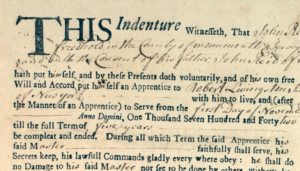 THIS Indenture Witnesseth, That John Reed
freehold in the County of monmouth
and with the Consent of his father John Reed
hath put himself, and by these Presents doth voluntarily, and of his own free
Will and Accord put himself an Apprentice to Robert Livingston
of New york with him to live, and (after
the Manner of an Apprentice) to Serve from the first Day of Novem
Anno Domini, One Thousand Seven Hundred and Forty two
till the full Term of five years
be complear and ended. During all which Term the said Apprentice his
said Master faithfully shall serve, his
Secrets keep, his lawfull Commands gladly every where obey: he shall do
no Damage to his said Master nor see to be done by others without